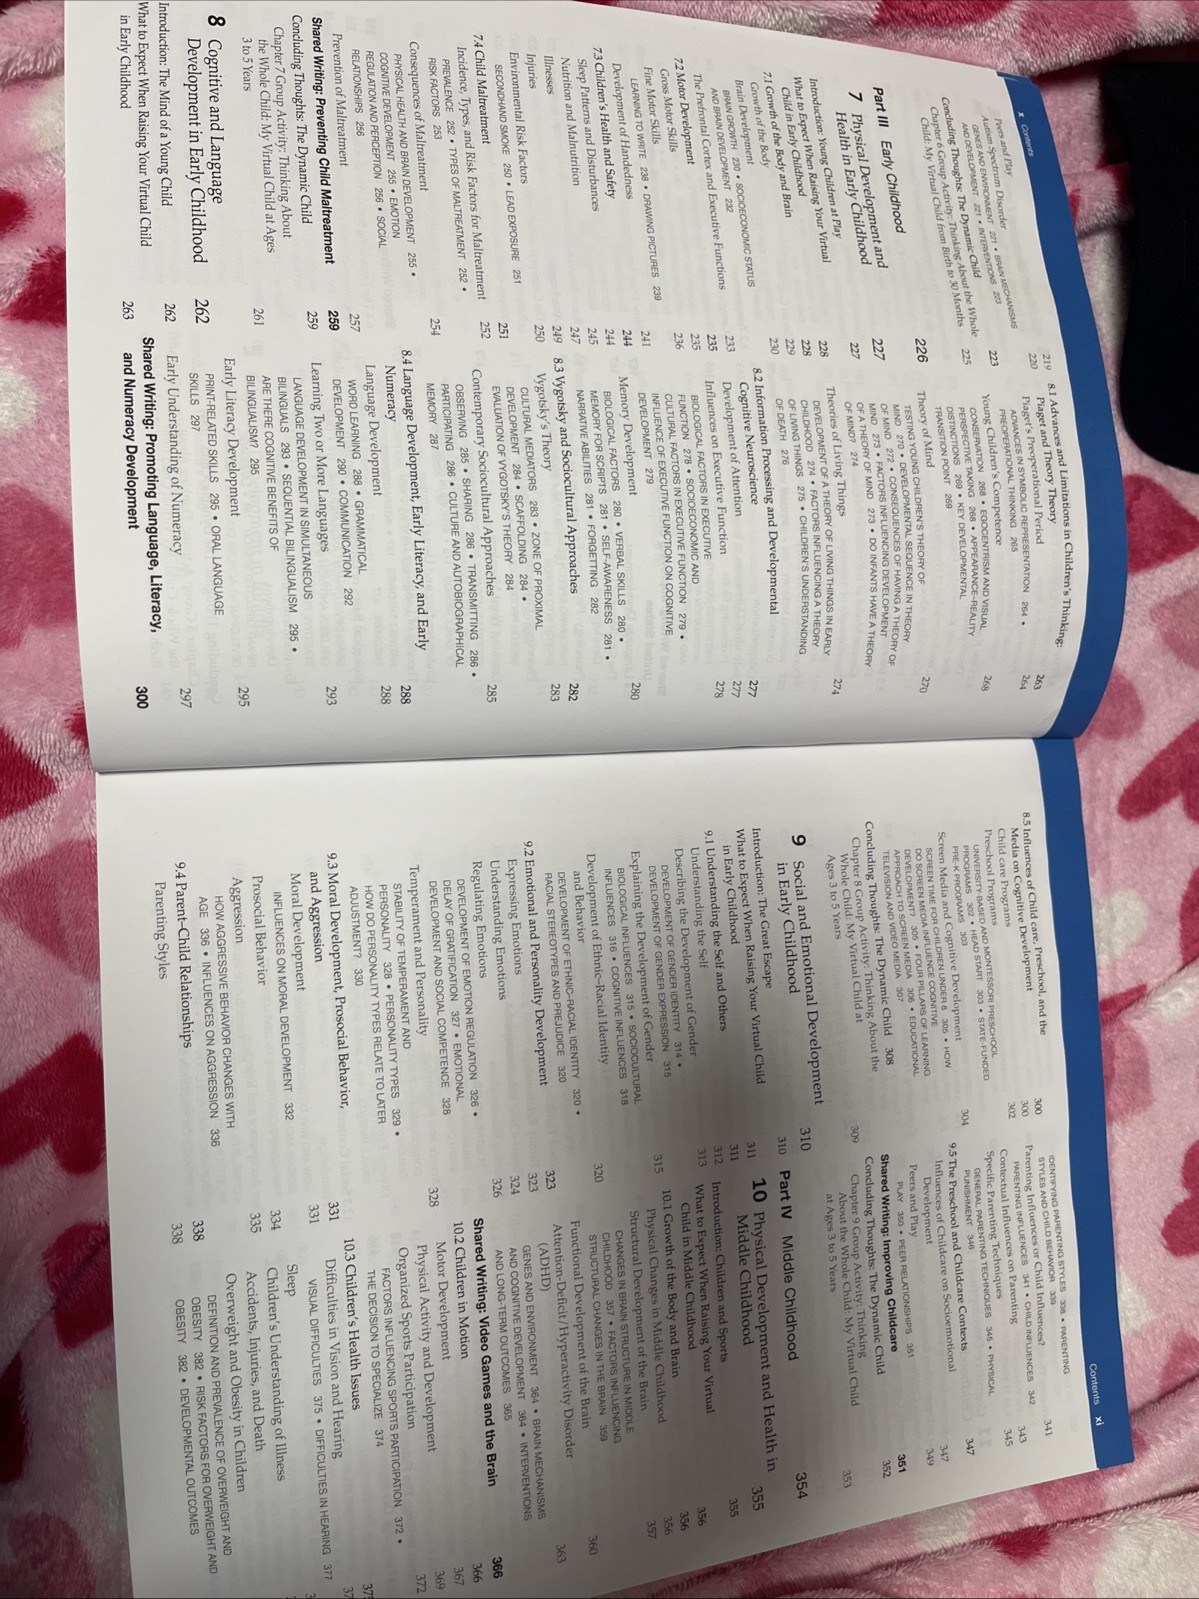 x Contents
Peers and Play 219
Autism Spectrum Disorder 220
GENES AND ENVIRONMENT 221 • BRAIN MECHANISMS
AND DEVELOPMENT 221 • INTERVENTIONS 223
Concluding Thoughts: The Dynamic Child 223
Chapter 6 Group Activity: Thinking About the Whole
Child: My Virtual Child from Birth to 30 Months 225
Part III Early Childhood 226
7 Physical Development and
Health in Early Childhood 227
Introduction: Young Children at Play 227
What to Expect When Raising Your Virtual
Child in Early Childhood 228
7.1 Growth of the Body and Brain 228
Growth of the Body 229
Brain Development 230
BRAIN GROWTH 230 • SOCIOECONOMIC STATUS
AND BRAIN DEVELOPMENT 232
The Prefrontal Cortex and Executive Functions 233
7.2 Motor Development 235
Gross Motor Skills 235
Fine Motor Skills 236
LEARNING TO WRITE 238 • DRAWING PICTURES 239
Development of Handedness 241
7.3 Children's Health and Safety 244
Sleep Patterns and Disturbances 244
Nutrition and Malnutrition 245
Illnesses 247
Injuries 249
Environmental Risk Factors 250
SECONDHAND SMOKE 250 • LEAD EXPOSURE 251
7.4 Child Maltreatment 251
Incidence, Types, and Risk Factors for Maltreatment 252
PREVALENCE 252 • TYPES OF MALTREATMENT 252 •
RISK FACTORS 253
Consequences of Maltreatment 254
PHYSICAL HEALTH AND BRAIN DEVELOPMENT 255 •
COGNITIVE DEVELOPMENT 255 • EMOTION
REGULATION AND PERCEPTION 256 • SOCIAL
RELATIONSHIPS 256
Prevention of Maltreatment 257
Shared Writing: Preventing Child Maltreatment 259
Concluding Thoughts: The Dynamic Child 259
Chapter 7 Group Activity: Thinking About
the Whole Child: My Virtual Child at Ages
3 to 5 Years 261
8 Cognitive and Language
Development in Early Childhood 262
Introduction: The Mind of a Young Child 262
What to Expect When Raising Your Virtual Child
in Early Childhood 263
8.1 Advances and Limitations in Children's Thinking:
Piaget and Theory Theory 263
Piaget's Preoperational Period 264
ADVANCES IN SYMBOLIC REPRESENTATION 264 •
PREOPERATIONAL THINKING 265
Young Children's Competence 268
CONSERVATION 268 • EGOCENTRISM AND VISUAL
PERSPECTIVE TAKING 268 • APPEARANCE–REALITY
DISTINCTIONS 269 • KEY DEVELOPMENTAL
TRANSITION POINT 269
Theory of Mind 270
TESTING YOUNG CHILDREN'S THEORY OF
MIND 270 • DEVELOPMENTAL SEQUENCE IN THEORY
OF MIND 272 • CONSEQUENCES OF HAVING A THEORY OF
MIND 273 • FACTORS INFLUENCING DEVELOPMENT
OF A THEORY OF MIND 273 • DO INFANTS HAVE A THEORY
OF MIND? 274
Theories of Living Things 274
DEVELOPMENT OF A THEORY OF LIVING THINGS IN EARLY
CHILDHOOD 274 • FACTORS INFLUENCING A THEORY
OF LIVING THINGS 275 • CHILDREN'S UNDERSTANDING
OF DEATH 276
8.2 Information Processing and Developmental
Cognitive Neuroscience 277
Development of Attention 277
Influences on Executive Function 278
BIOLOGICAL FACTORS IN EXECUTIVE
FUNCTION 278 • SOCIOECONOMIC AND
CULTURAL FACTORS IN EXECUTIVE FUNCTION 279 •
INFLUENCE OF EXECUTIVE FUNCTION ON COGNITIVE
DEVELOPMENT 279
Memory Development 280
BIOLOGICAL FACTORS 280 • VERBAL SKILLS 280 •
MEMORY FOR SCRIPTS 281 • SELF-AWARENESS 281 •
NARRATIVE ABILITIES 281 • FORGETTING 282
8.3 Vygotsky and Sociocultural Approaches 282
Vygotsky's Theory 283
CULTURAL MEDIATORS 283 • ZONE OF PROXIMAL
DEVELOPMENT 284 • SCAFFOLDING 284 •
EVALUATION OF VYGOTSKY'S THEORY 284
Contemporary Sociocultural Approaches 285
OBSERVING 285 • SHARING 286 • TRANSMITTING 286 •
PARTICIPATING 286 • CULTURE AND AUTOBIOGRAPHICAL
MEMORY 287
8.4 Language Development, Early Literacy, and Early
Numeracy 288
Language Development 288
WORD LEARNING 288 • GRAMMATICAL
DEVELOPMENT 290 • COMMUNICATION 292
Learning Two or More Languages 293
LANGUAGE DEVELOPMENT IN SIMULTANEOUS
BILINGUALS 293 • SEQUENTIAL BILINGUALISM 295 •
ARE THERE COGNITIVE BENEFITS OF
BILINGUALISM? 295
Early Literacy Development 295
PRINT-RELATED SKILLS 295 • ORAL LANGUAGE
SKILLS 297
Early Understanding of Numeracy 297
Shared Writing: Promoting Language, Literacy,
and Numeracy Development 300
Contents xi
8.5 Influences of Child care, Preschool, and the
Media on Cognitive Development 300
Child care Programs 300
Preschool Programs 302
UNIVERSITY-BASED AND MONTESSORI PRESCHOOL
PROGRAMS 302 • HEAD START 303 • STATE-FUNDED
PRE-K PROGRAMS 303
Screen Media and Cognitive Development 304
SCREEN TIME FOR CHILDREN UNDER 6 305 • HOW
DO SCREEN MEDIA INFLUENCE COGNITIVE
DEVELOPMENT? 305 • FOUR PILLARS OF LEARNING
APPROACH TO SCREEN MEDIA 306 • EDUCATIONAL
TELEVISION AND VIDEO MEDIA 307
Concluding Thoughts: The Dynamic Child 308
Chapter 8 Group Activity: Thinking About the
Whole Child: My Virtual Child at
Ages 3 to 5 Years 309
9 Social and Emotional Development
in Early Childhood 310
Introduction: The Great Escape 310
What to Expect When Raising Your Virtual Child
in Early Childhood 311
9.1 Understanding the Self and Others 311
Understanding the Self 312
Describing the Development of Gender 313
DEVELOPMENT OF GENDER IDENTITY 314 •
DEVELOPMENT OF GENDER EXPRESSION 315
Explaining the Development of Gender 315
BIOLOGICAL INFLUENCES 315 • SOCIOCULTURAL
INFLUENCES 316 • COGNITIVE INFLUENCES 318
Development of Ethnic–Racial Identity
and Behavior 320
DEVELOPMENT OF ETHNIC–RACIAL IDENTITY 320 •
RACIAL STEREOTYPES AND PREJUDICE 320
9.2 Emotional and Personality Development 323
Expressing Emotions 323
Understanding Emotions 324
Regulating Emotions 326
DEVELOPMENT OF EMOTION REGULATION 326 •
DELAY OF GRATIFICATION 327 • EMOTIONAL
DEVELOPMENT AND SOCIAL COMPETENCE 328
Temperament and Personality 328
STABILITY OF TEMPERAMENT AND
PERSONALITY 328 • PERSONALITY TYPES 329 •
HOW DO PERSONALITY TYPES RELATE TO LATER
ADJUSTMENT? 330
9.3 Moral Development, Prosocial Behavior,
and Aggression 331
Moral Development 331
INFLUENCES ON MORAL DEVELOPMENT 332
Prosocial Behavior 334
Aggression 335
HOW AGGRESSIVE BEHAVIOR CHANGES WITH
AGE 336 • INFLUENCES ON AGGRESSION 336
9.4 Parent–Child Relationships 338
Parenting Styles 338
IDENTIFYING PARENTING STYLES 338 • PARENTING
STYLES AND CHILD BEHAVIOR 339
Parenting Influences or Child Influences? 341
PARENTING INFLUENCES 341 • CHILD INFLUENCES 342
Contextual Influences on Parenting 343
Specific Parenting Techniques 345
GENERAL PARENTING TECHNIQUES 345 • PHYSICAL
PUNISHMENT 346
9.5 The Preschool and Childcare Contexts 347
Influences of Childcare on Socioemotional
Development 347
Peers and Play 349
PLAY 350 • PEER RELATIONSHIPS 351
Shared Writing: Improving Childcare 351
Concluding Thoughts: The Dynamic Child 352
Chapter 9 Group Activity: Thinking
About the Whole Child: My Virtual Child
at Ages 3 to 5 Years 353
Part IV Middle Childhood 354
10 Physical Development and Health in
Middle Childhood 355
Introduction: Children and Sports 355
What to Expect When Raising Your Virtual
Child in Middle Childhood 356
10.1 Growth of the Body and Brain 356
Physical Changes in Middle Childhood 356
Structural Development of the Brain 357
CHANGES IN BRAIN STRUCTURE IN MIDDLE
CHILDHOOD 357 • FACTORS INFLUENCING
STRUCTURAL CHANGES IN THE BRAIN 359
Functional Development of the Brain 360
Attention-Deficit/Hyperactivity Disorder
(ADHD) 363
GENES AND ENVIRONMENT 364 • BRAIN MECHANISMS
AND COGNITIVE DEVELOPMENT 364 • INTERVENTIONS
AND LONG-TERM OUTCOMES 365
Shared Writing: Video Games and the Brain 366
10.2 Children in Motion 366
Motor Development 367
Physical Activity and Development 369
Organized Sports Participation 372
FACTORS INFLUENCING SPORTS PARTICIPATION 372 •
THE DECISION TO SPECIALIZE 374
10.3 Children's Health Issues
Difficulties in Vision and Hearing
VISUAL DIFFICULTIES 375 • DIFFICULTIES IN HEARING 377
Sleep
Children's Understanding of Illness
Accidents, Injuries, and Death
Overweight and Obesity in Children
DEFINITION AND PREVALENCE OF OVERWEIGHT AND
OBESITY 382 • RISK FACTORS FOR OVERWEIGHT AND
OBESITY 382 • DEVELOPMENTAL OUTCOMES